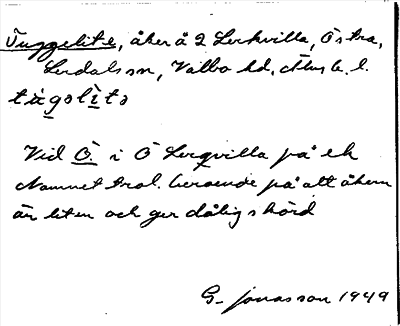 Tuggelite, åker å 2 Lerkvilla, Östra,
Lerdals sn, Valbo hd, Älvsb. l.
tùgəlìtə
Vid Ö. i Ö Lerkvilla på ek
Namnet trol. beroende på att åkern
är liten och ger dålig skörd
G. Jonasson 1949